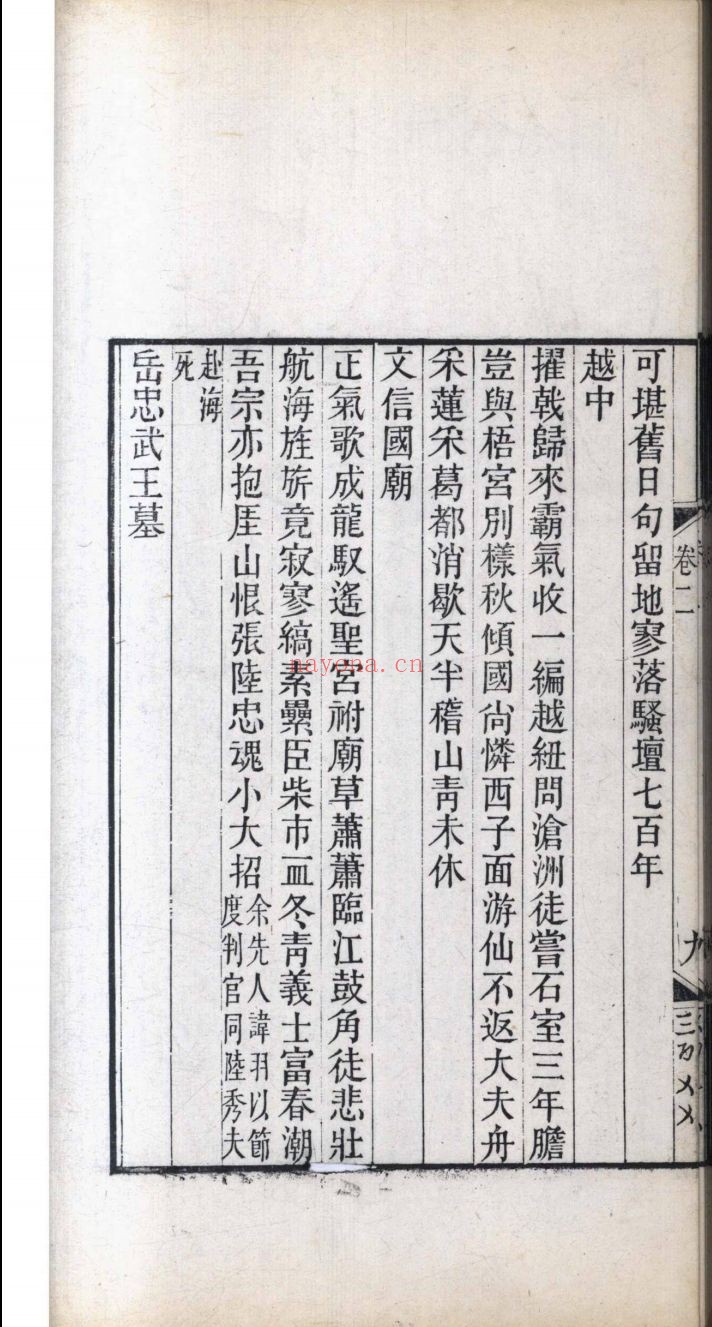 可堪舊日句留地寥落騷壇七百年
越中
擢戟歸來霸氣收一編越紐問滄洲徒嘗石室三年膽
豈與梧宮別樣秋傾國尙憐西子面游仙不返大夫舟
采蓮采葛都消歇天半稽山靑未休
文信國廟
正氣歌成龍馭遙聖宮祔廟草蕭蕭臨江鼓角徒悲壯
航海旌旂竟寂寥縞素纍臣柴市血冬靑義士富春潮
吾宗亦抱厓山恨張陸忠魂小大招余先人諱羽以節
度判官同陸秀夫
赴海
死
岳忠武王墓
卷二
九
nayona.cn